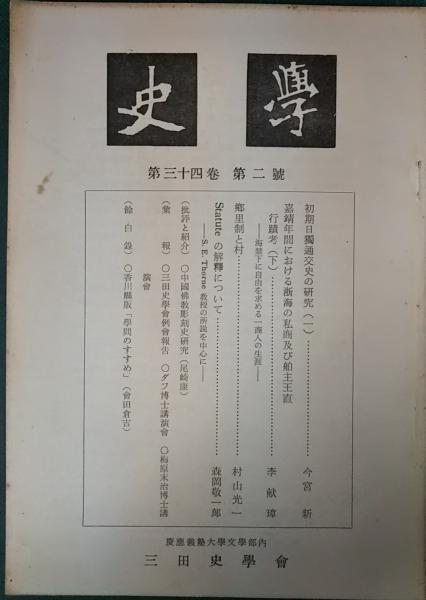 史學
第三十四卷 第二號
初期日獨通交史の研究(一)……………………今宮 新
嘉靖年間における浙海の私商及び舶主王直
行蹟考(下)……………………李 献 璋
――海禁下に自由を求める一商人の生涯――
鄕里制と村……………………村山光一
Statute の解釋について……………………森岡敬一郎
――S. E. Thorne 教授の所説を中心に――
(批評と紹介) ○中國佛敎彫刻史硏究(尾崎康)
(彙 報) ○三田史學會例會報告 ○ダフ博士講演會 ○梅原末治博士講
演會
(餘 白 錄) ○香川縣版「學問のすすめ」(會田倉吉)
慶應義塾大學文學部內
三田史學會